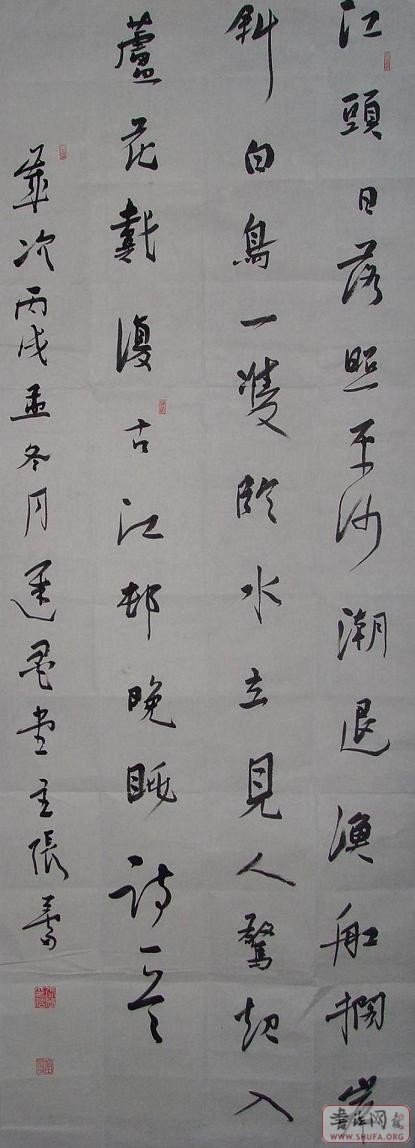 江頭日落照平沙潮退漁舡擱岸
斜白鳥一雙臨水立見人驚起入
蘆花戴復古江邨晚眺詩一首
歲次丙戌孟冬月墨堂主張
書法网
WWW.SHUFA.ORG